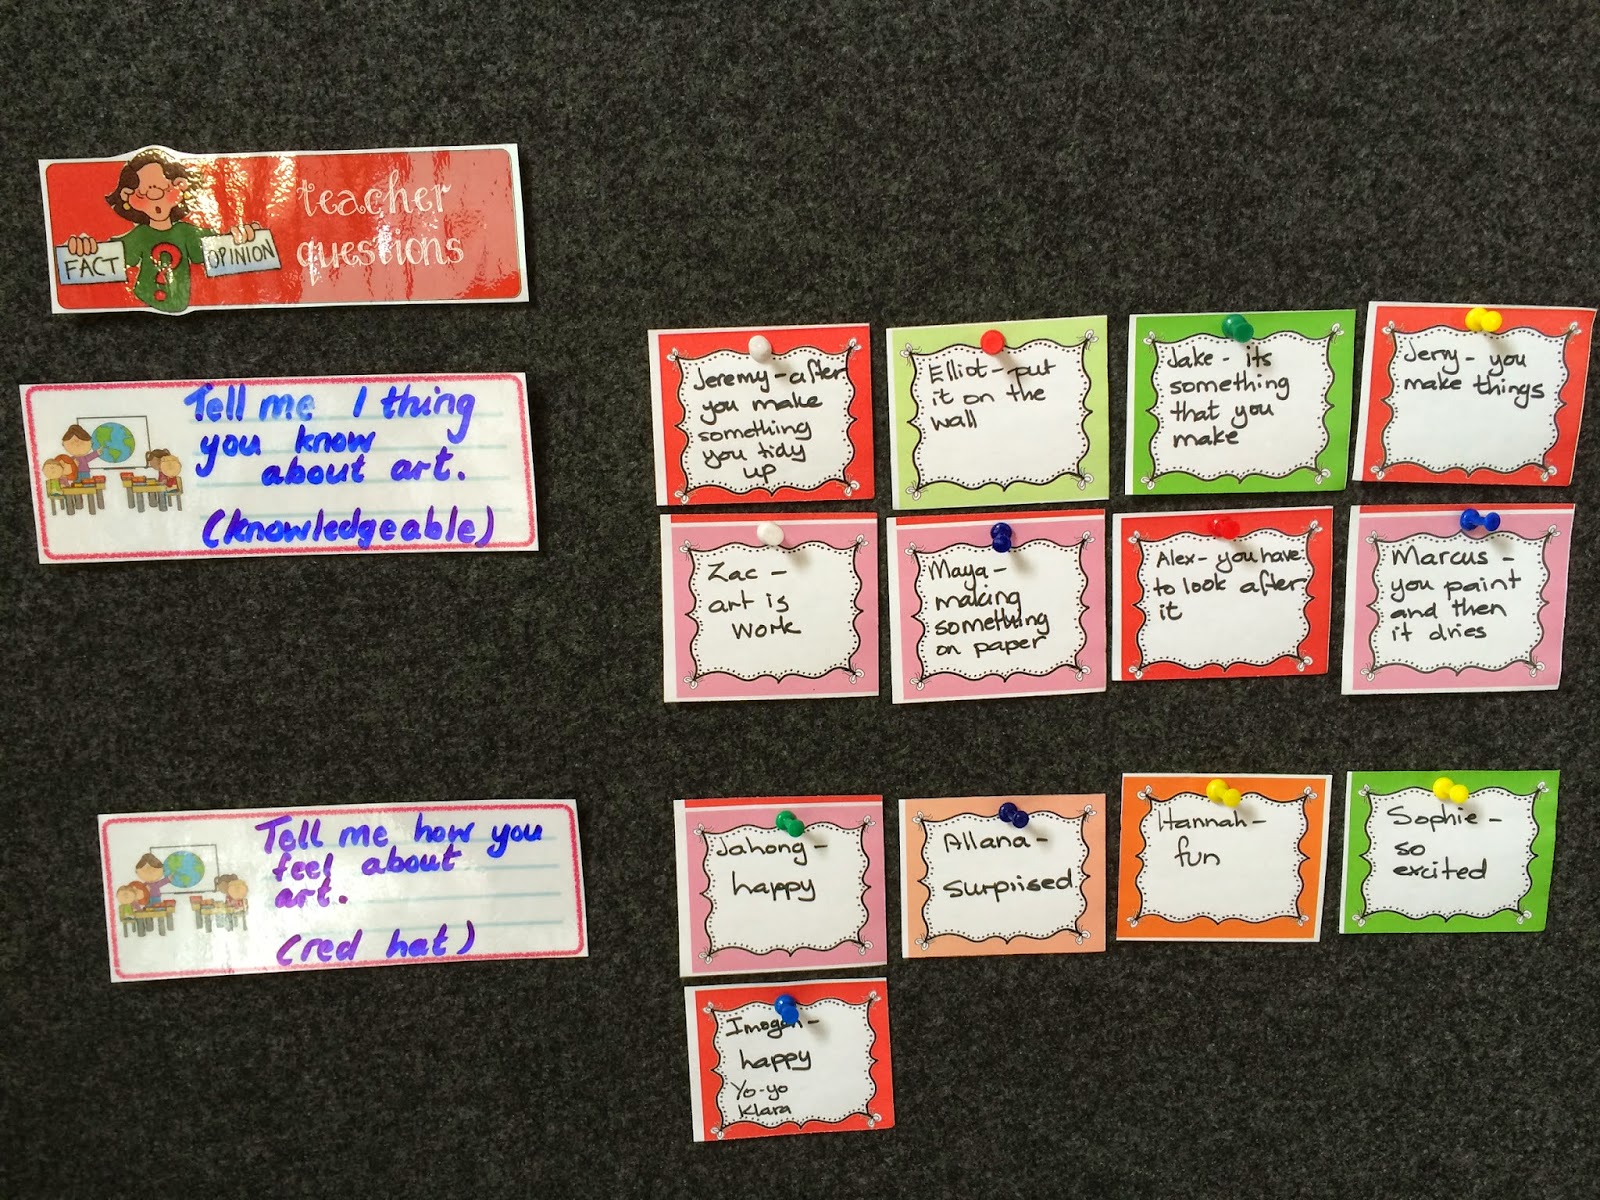 FACT
OPINION
teacher
questions
Tell me 1 thing
you know
about art.
(knowledgeable)
Jeremy - after
you make
something
you tidy
up
Elliot - put
it on the
wall
Jake - its
something
that you
make
Jerry - you
make things
Zac -
art is
work
Maya -
making
something
on paper
Alex - you have
to look after
it
Marcus -
you paint
and then
it dries
Tell me how you
feel about
art.
(red hat)
Jahong -
happy
Allana -
surpiised
Hannah -
fun
Sophie -
so
excited
Imogen -
happy
Yo-yo
Klara